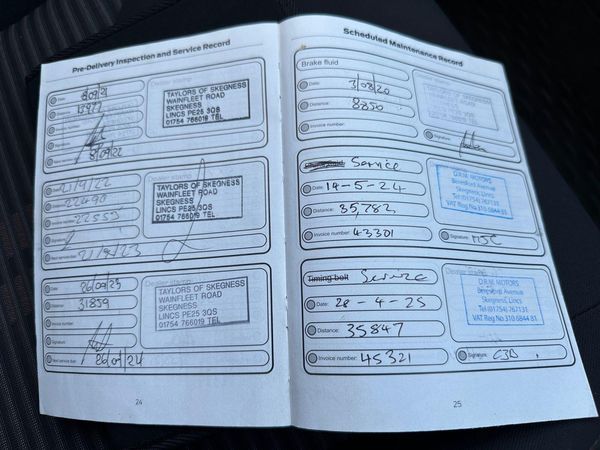 Pre-Delivery Inspection and Service Record
Date:
8/09/21
Dealer stamp
TAYLORS OF SKEGNESS
WAINFLEET ROAD
SKEGNESS
LINCS PE25 3QS
01754 766019 TEL
Distance:
13977
Invoice number:
Signature:
Next service due:
8/09/22
Date:
21/9/22
Dealer stamp
TAYLORS OF SKEGNESS
WAINFLEET ROAD
SKEGNESS
LINCS PE25 3QS
01754 766019 TEL
Distance:
22490
Invoice number:
22553
Signature:
Next service due:
21/9/23
Date:
26/09/23
Dealer stamp
TAYLORS OF SKEGNESS
WAINFLEET ROAD
SKEGNESS
LINCS PE25 3QS
01754 766019 TEL
Distance:
31859
Invoice number:
Signature:
Next service due:
26/09/24
24
Scheduled Maintenance Record
Brake fluid
Date:
3/08/20
Distance:
8850
Invoice number:
Signature:
Service
Date: 14-5-24
Distance: 35,782
Invoice number: 43301
D.R.M. MOTORS
Beresford Avenue
Skegness, Lincs
Tel: (01754) 767131
VAT Reg No 310 6844 81
Signature: MJC
Timing belt Service
Dealer stamp
Date: 28-4-25
Distance: 35847
Invoice number: 45321
D.R.M. MOTORS
Beresford Avenue
Skegness, Lincs
Tel: (01754) 767131
VAT Reg No 310 6844 81
Signature:
25